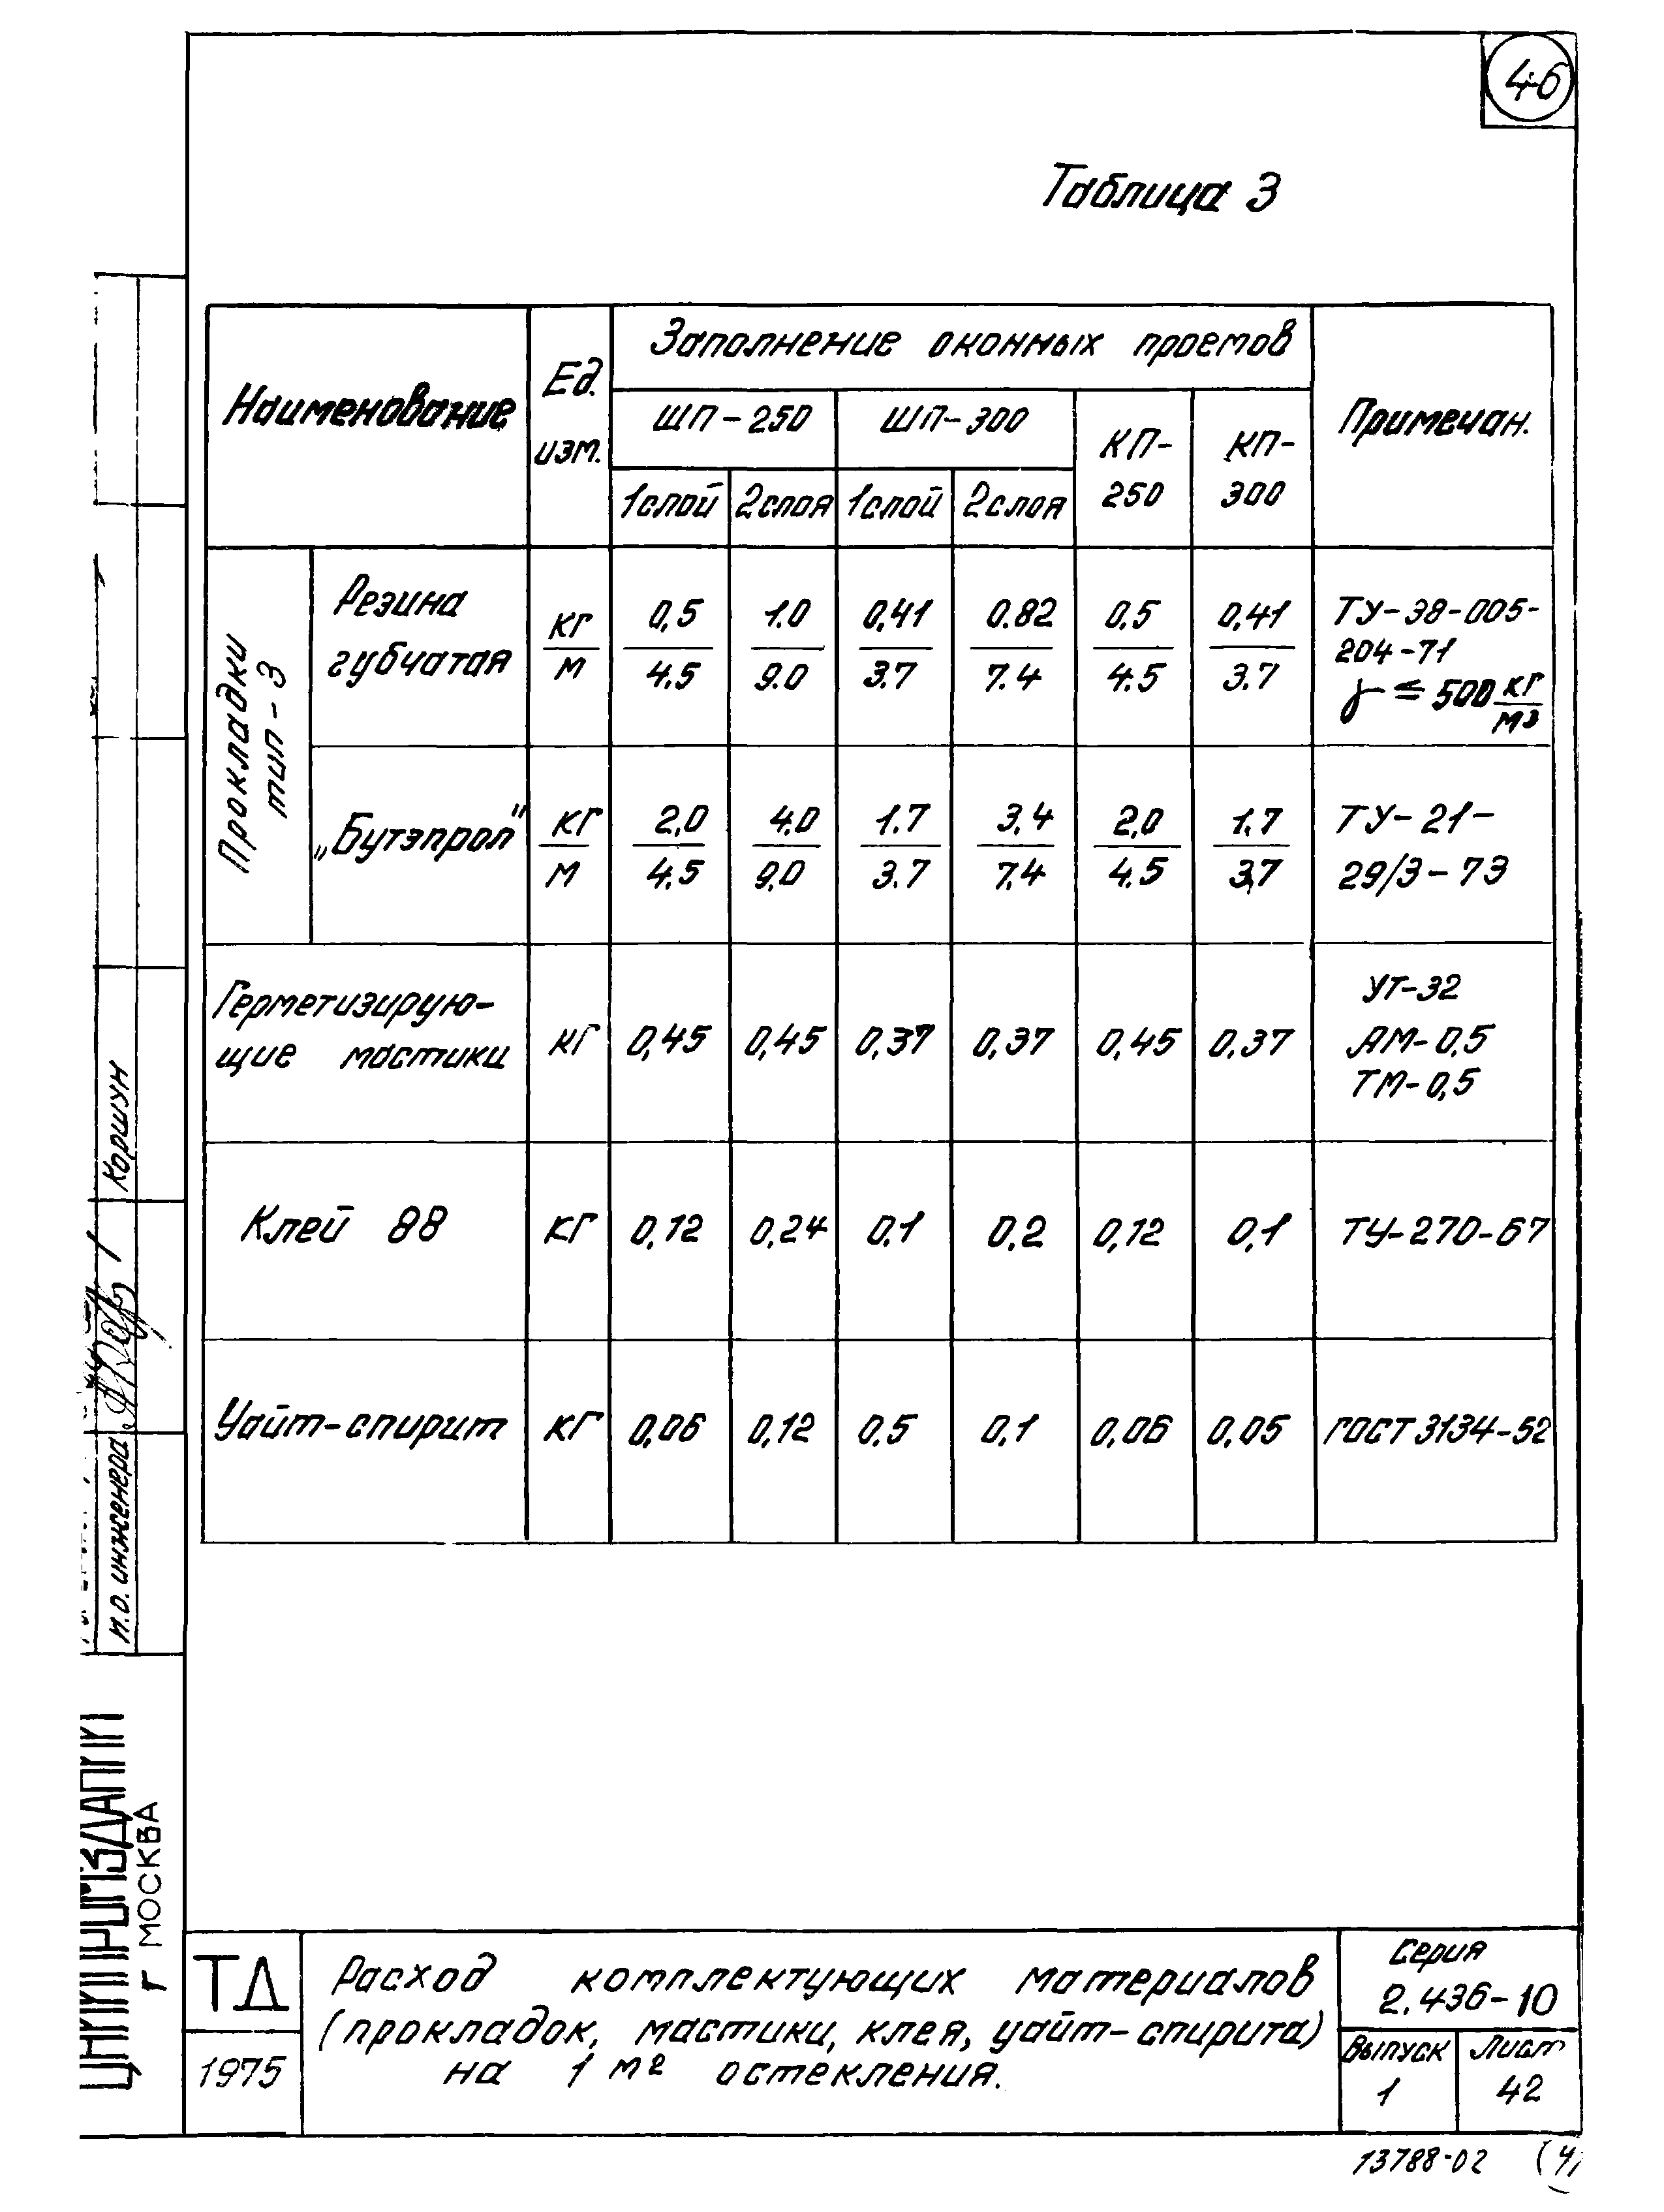 46
Таблица 3
Наименование
Ед.
изм.
Заполнение оконных проемов
ШП-250
ШП-300
КП-
250
КП-
300
Примечан.
1слой
2слоя
1слой
2слоя
Прокладки
тип-3
Резина
губчатая
кг
м
0,5
4.5
1.0
9.0
0,41
3.7
0.82
7.4
0,5
4.5
0,41
3.7
ТУ-38-005-
204-71
γ ≤ 500 кг
м3
„Бутэпрол"
кг
м
2,0
4.5
4,0
9,0
1.7
3.7
3,4
7,4
2,0
4.5
1,7
3,7
ТУ-21-
29/3-73
Герметизирую-
щие мастики
кг
0,45
0,45
0,37
0,37
0,45
0,37
УТ-32
АМ-0,5
ТМ-0,5
Клей 88
кг
0,12
0,24
0,1
0,2
0,12
0,1
ТУ-270-67
Уайт-спирит
кг
0,06
0,12
0,5
0,1
0,06
0,05
ГОСТ 3134-52
Коршун
И.О. инженера
г МОСКВА
ТД
1975
Расход комплектующих материалов
(прокладок, мастики, клея, уайт-спирита)
на 1 м2 остекления.
Серия
2.436-10
Выпуск
1
Лист
42
13788-02